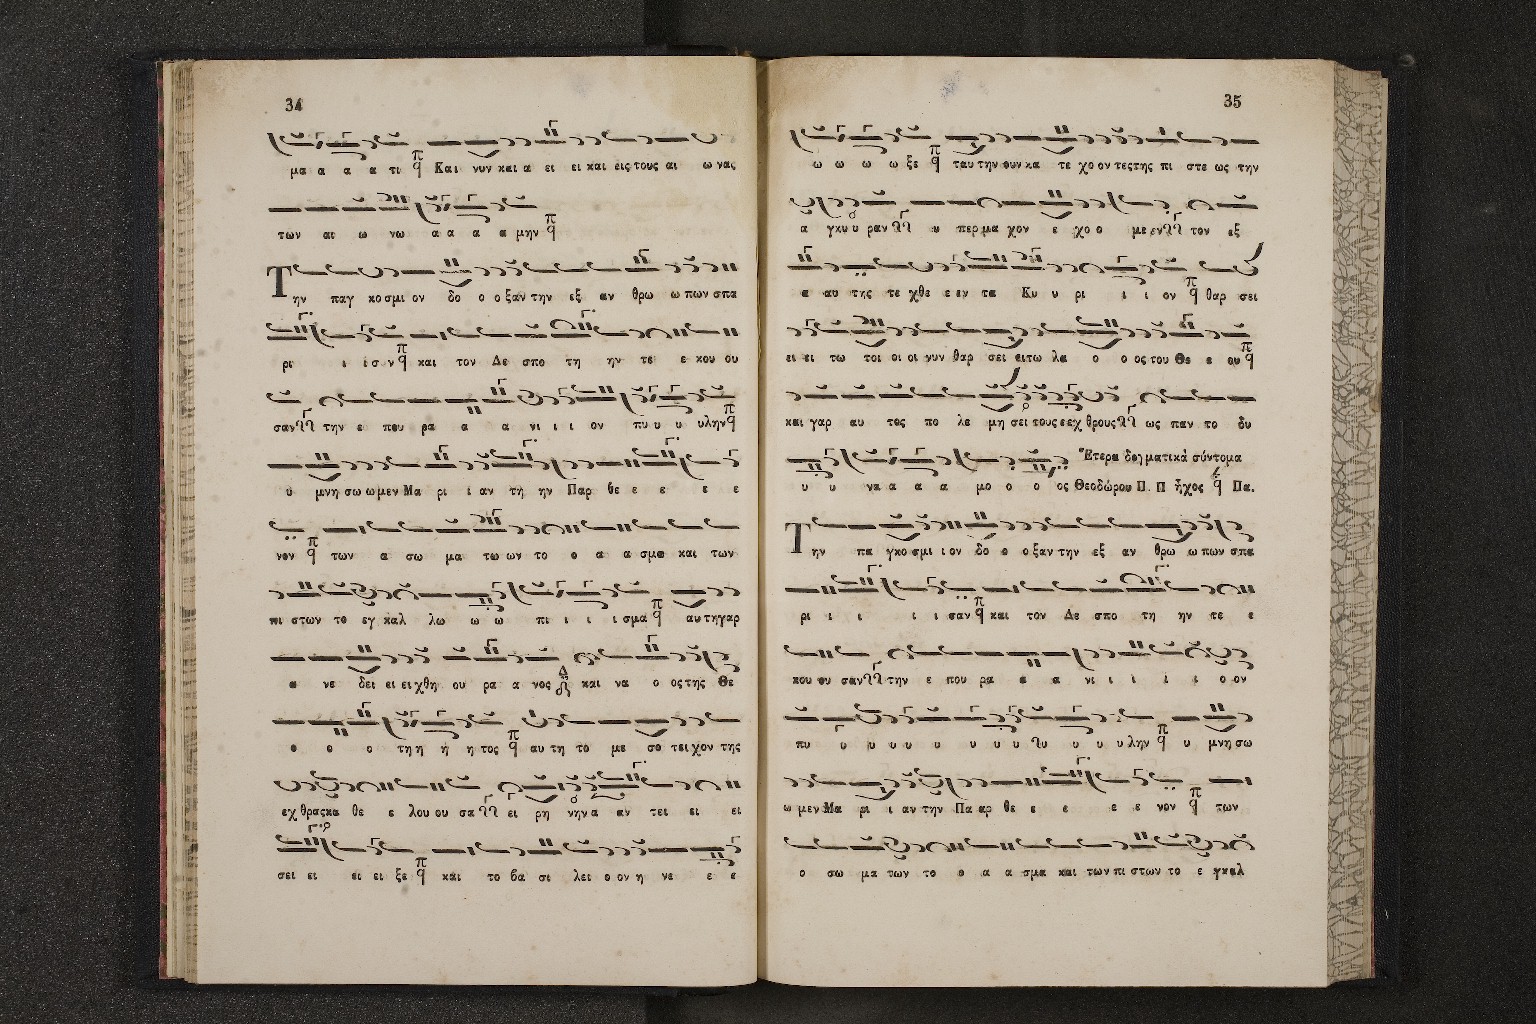 34
μα α α α τι Και νυν και α ει ει και εις τους αι ω νας
των αι ω νω α α α α μην
Την παγ κο σμι ον δο ο ο ξαν την εξ αν θρω ω πων σπα
ρι ι ι σ ν και τον Δε σπο τη ην τε ε κου ου
σαν την ε που ρα α α νι ι ι ον πυ υ υ υλην
υ μνη σω ω μεν Μα ρι ι αν τη ην Παρ θε ε ε ε ε
νον των α σω μα τω ων το ο α α σμα και των
πι στων το εγ καλ λω ω ω πι ι ι ι σμα αυ τη γαρ
α νε δει ει ει χθη ου ρα α νος και να ο ος της Θε
ο ο ο τη η ή η τος αυ τη το με σο τει χον της
εχ θρας κα θε ε λου ου σα ει ρη νην α αν τει ει ει
σει ει ει ει ξε και το βα σι λει ο ον η νε ε ε
35
ω ω ω ω ξε ταυ την ουν κα τε χο ον τες της πι στε ως την
α γκυ υ ραν υ περ μα χον ε χο ο με εν τον εξ
α αυ της τε χθε ε εν τα Κυ υ ρι ι ι ον θαρ σει
ει ει τω τοι οι οι νυν θαρ σει ει τω λα ο ο ος του Θε ε ου
και γαρ αυ τος πο λε μη σει τους ε εχ θρους ως παν το δυ
υ υ να α α α μο ο ο ος Ἕτερα δογματικὰ σύντομα
Θεοδώρου Π. Π ἦχος Πα.
Την πα γκο σμι ι ον δο ο ο ξαν την εξ αν θρω ω πων σπα
ρι ι ι ι ι σαν και τον Δε σπο τη ην τε ε
κου ου σαν την ε που ρα α α νι ι ι ι ι ο ον
πυ υ υ υ υ υ υ υ υ υ υ υ λην υ μνη σω
ω μεν Μα ρι ι αν την Πα αρ θε ε ε ε ε νον των
ο σω μα των το ο α α σμα και των πι στων το ε γκαλ